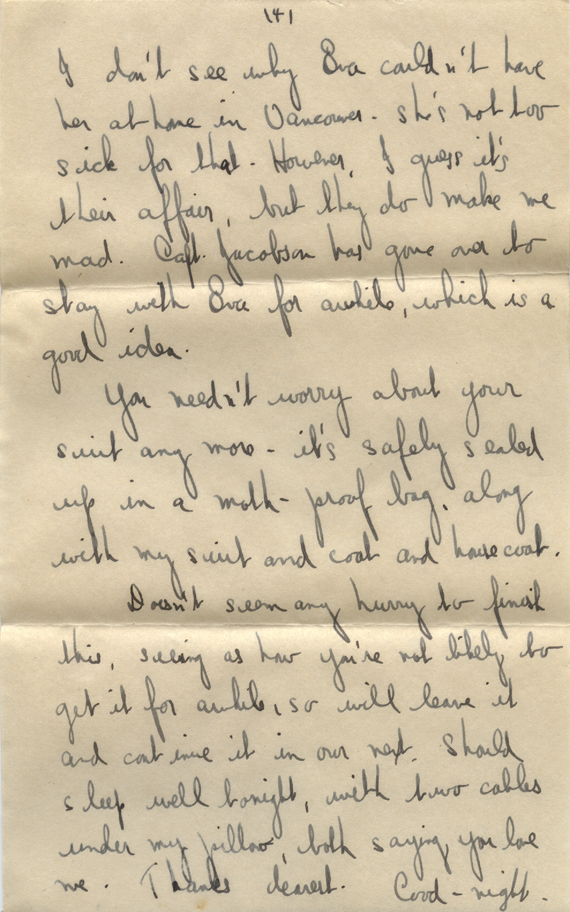 (4)
I don't see why Eva couldn't have
her at home in Vancouver. she's not too
sick for that. However, I guess it's
their affair, but they do make me
mad. Capt. Jacobson has gone over to
stay with Eva for awhile, which is a
good idea.
You needn't worry about your
suit any more - it's safely sealed
up in a moth-proof bag, along
with my suit and coat and housecoat.
Doesn't seem any hurry to finish
this, seeing as how you're not likely to
get it for awhile, so will leave it
and continue it in our next. Should
sleep well tonight, with two cables
under my pillow, both saying you love
me. Thanks dearest. Good-night.